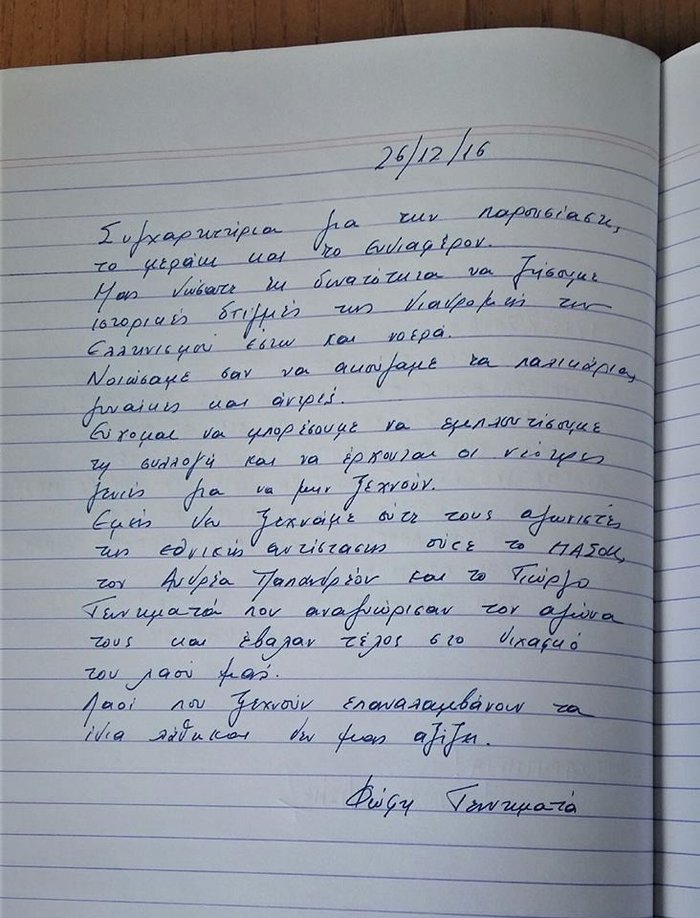 26/12/16
Συγχαρητήρια για την παρουσίαση,
το μεράκι και το ενδιαφέρον.
Μας δώσατε τη δυνατότητα να ζήσουμε
ιστορικές στιγμές της διαδρομής του
Ελληνισμού έστω και νοερά.
Νοιώσαμε σαν να ακούγαμε τα παλικάρια,
γυναίκες και άντρες.
Εύχομαι να μπορέσουμε να εμπλουτίσουμε
τη συλλογή και να έρχονται οι νεότερες
γενιές για να μην ξεχνούν.
Εμείς δεν ξεχνάμε ούτε τους αγωνιστές
της εθνικής αντίστασης ούτε το ΠΑΣΟΚ,
τον Ανδρέα Παπανδρέου και το Γιώργο
Γεννηματά που αναγνώρισαν τον αγώνα
τους και έβαλαν τέλος στο διχασμό
του λαού μας.
Λαοί που ξεχνούν επαναλαμβάνουν τα
ίδια λάθη και δεν μας αξίζει.
Φώφη Γεννηματά